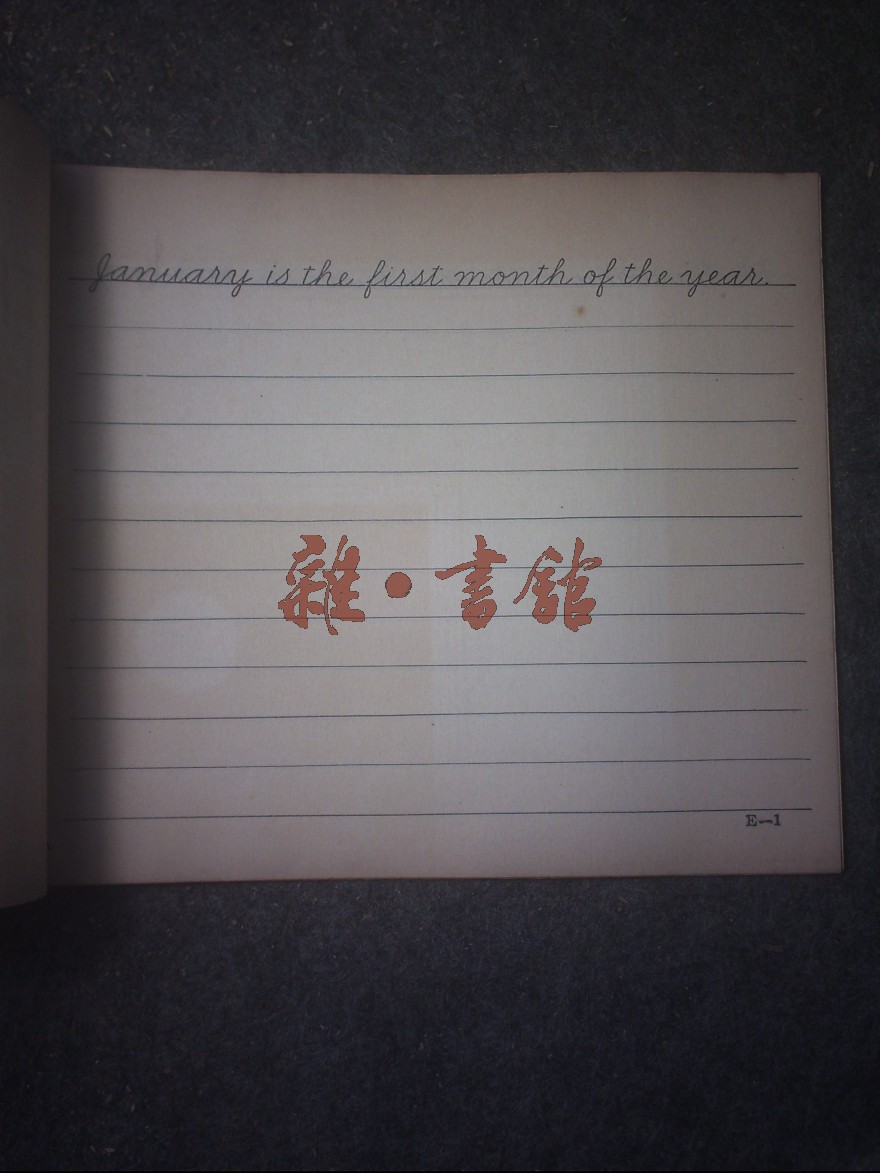 January is the first month of the year.
雜·書館
E—1